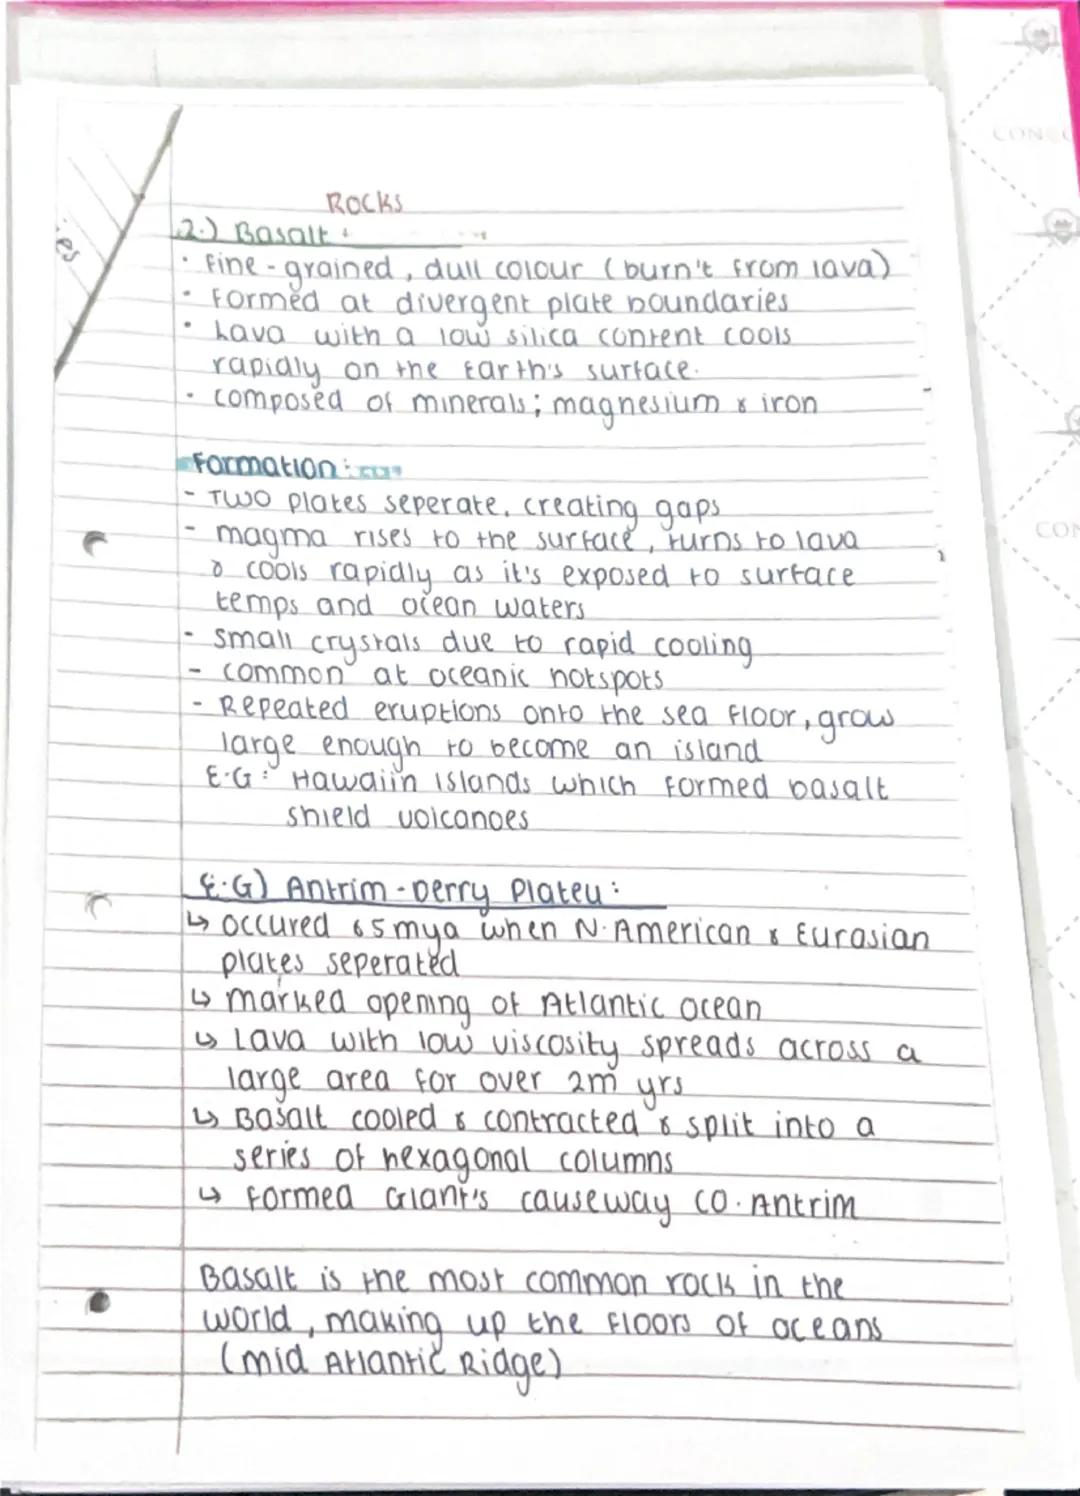 Rocks
es
2.) Basalt
• Fine-grained, dull colour (burn't from lava)
• Formed at divergent plate boundaries
• Lava with a low silica content cools
rapidly on the Earth's surface.
• composed of minerals; magnesium & iron
Formation:
- Two plates seperate, creating gaps
- magma rises to the surface, turns to lava
& cools rapidly as it's exposed to surface
temps and ocean waters
- small crystals due to rapid cooling
- common at oceanic hotspots
- Repeated eruptions onto the sea floor, grow
large enough to become an island
E.G: Hawaiin islands which formed basalt
shield volcanoes
E.G) Antrim-Derry Plateu:
↳ occured 65mya when N. American & Eurasian
plates seperated
↳ marked opening of Atlantic ocean
↳ Lava with low viscosity spreads across a
large area for over 2m yrs
↳ Basalt cooled & contracted & split into a
series of hexagonal columns
↳ formed Giant's causeway CO. Antrim
Basalt is the most common rock in the
world, making up the floors of oceans
(mid Atlantic Ridge)